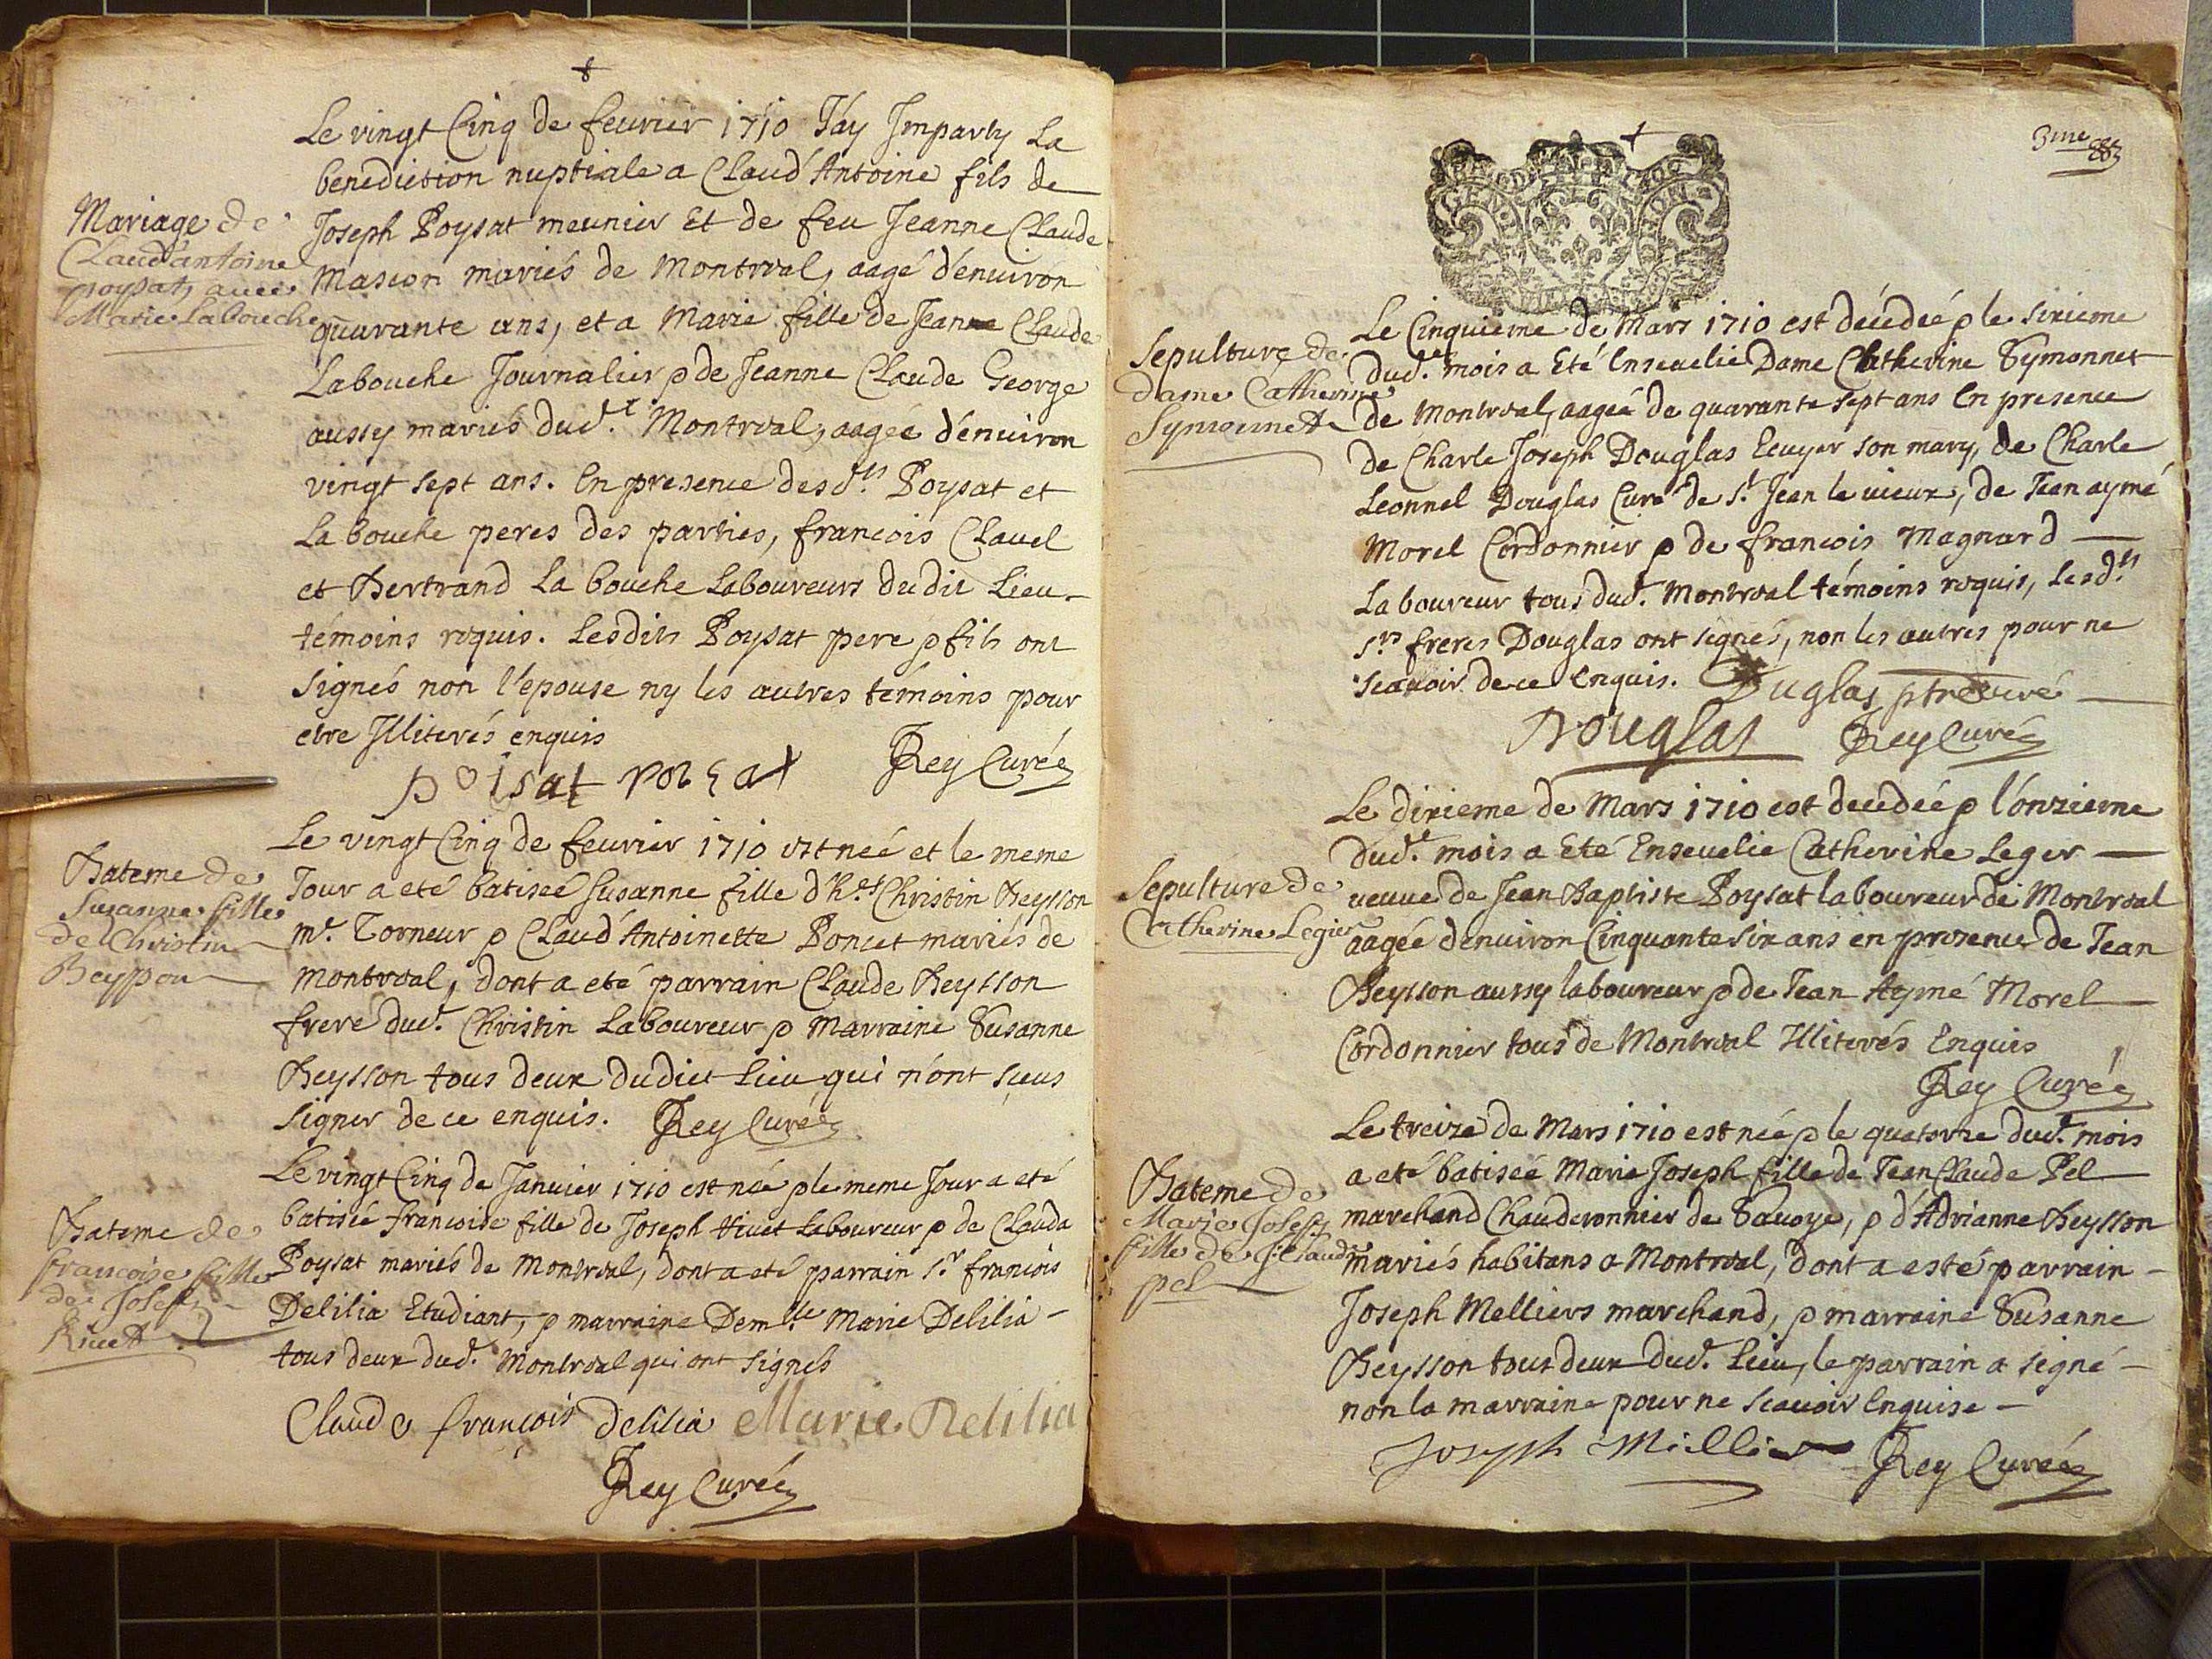 Le vingt Cinq de feurier 1710 J'ay Imparty La
benediction nuptiale a Claud' Antoine fils de
Mariage de
Claud'antoine
poysat, avec
Marie Labouche
Joseph Poysat meunier Et de feu Jeanne Claude
Mascon mariés de Montroal, aagé d'enuiron
quarante ans, et a Marie fille de Jeanne Claude
Labouche Journalier & de Jeanne Claude George
aussy mariés dud.t Montroal, aagée d'enuiron
vingt sept ans. En presence desd.ts Poysat et
Labouche peres des parties, francois Clauel
et Bertrand La bouche Laboureurs dudit Lieu
témoins requis. Lesdits Poysat pere & fils ont
signés non l'epouse ny les autres témoins pour
etre Illiterés enquis
poisat poisat Rey Curé
Le vingt Cinq de feurier 1710 est neé et le meme
Bateme de
Suzanne fille
de Christin
Beysson
Jour a eté batiseé Susanne fille d'h.et Christin Beysson
m.e Torneur & Claud' Antoinette Poncet mariés de
Montroal, dont a eté parrain Claude Beysson
frere dud. Christin Laboureur & Marraine Susanne
Beysson tous deux dudict Lieu qui n'ont sçeus
signer de ce enquis. Rey Curé
Le vingt Cinq de Januier 1710 est née & le meme Jour a eté
Bateme de
francoise fille
de Joseph
Riuet
batisée francoise fille de Joseph Riuet Laboureur & de Clauda
Poysat mariés de Montroal, dont a eté parrain S.r francois
Delilia Etudiant, & marraine Dem.lle Marie Delilia
tous deux dud. Montroal qui ont signés
Claude françois delilia Marie Delilia
Rey Curé
3me
GEN.
Le Cinquieme de Mars 1710 est decedeé & le sixieme
Sepulture de
dame Catherine
Symonnet
dud.t mois a Eté Enseuelie Dame Catherine Symonnet
de Montroal, aageé de quarante sept ans En presence
de Charle Joseph Douglas Ecuyer son mary, de Charle
Leonnel Douglas Curé de S.t Jean le vieux, de Jean aymé
Morel Cordonnier & de francois Magnard
Laboureur tous dud. Montroal témoins requis, Lesd.ts
S.rs freres Douglas ont signés, non les autres pour ne
scauoir de ce Enquis. Duglas ptre curé
Douglas Rey Curé
Le dixieme de Mars 1710 est decedeé & l'onzieme
dud.t mois a Eté Enseuelie Catherine Leger
Sepulture de
Catherine Legier
veuue de Jean Baptiste Poysat laboureur de Montroal
aagée d'enuiron Cinquante six ans en presence de Jean
Beysson aussy laboureur & de Jean Aymé Morel
Cordonnier tous de Montroal Illiterés Enquis
Rey Curé
Le treize de Mars 1710 est née & le quatorze dud.t mois
Bateme de
Marie Joseph
fille de J Claude
pel
a eté batiseé Marie Joseph fille de Jean Claude Pel
marchand Chauderonnier de Sauoye, & d'Adrianne Beysson
mariés habitans a Montroal, dont a esté parrain
Joseph Melliers marchand, & marraine Susanne
Beysson tous deux dud. Lieu, le parrain a signé
non la marraine pour ne scauoir Enquise
Joseph Millier Rey Curé